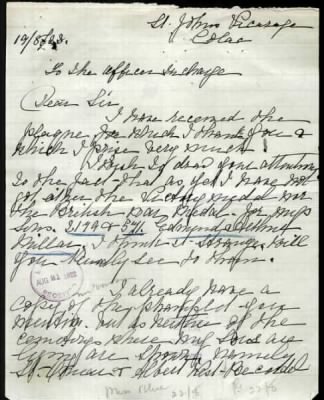 St. Johns Vicarage
Colac
19/8/23.
To the Officer in charge
Dear Sir,
I have received the
plaque for which I thank you &
which I prize very much
I wish to draw your attention
to the fact that as yet I have not
got either the Victory medal nor
the British War Medal for my
sons 2179 & 571. Edmund
Millar. I think it strange. Will
you kindly see to them.
I already have a
copy of the pamphlet you
mention. but as neither of the
cemeteries where my Sons are
lying are shown namely
St. Albert
22/8